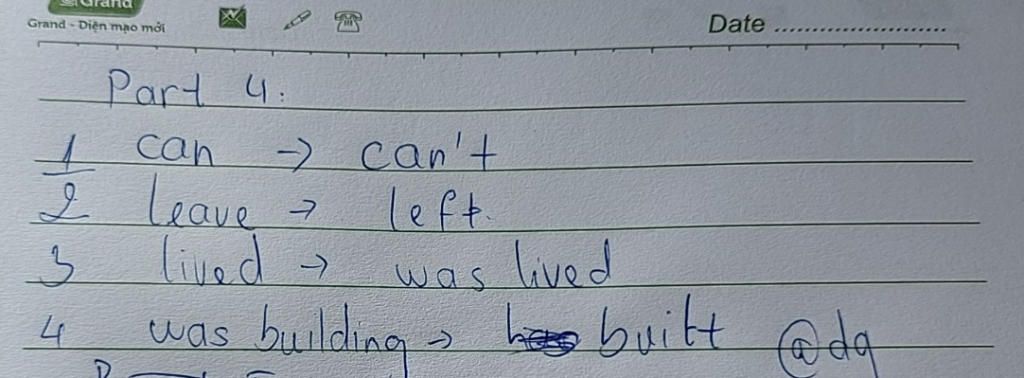 Grand
Grand - Diện mạo mới
Date
Part 4:
1 can → can't
2 leave → left.
3 lived → was lived
4 was building → built @dq